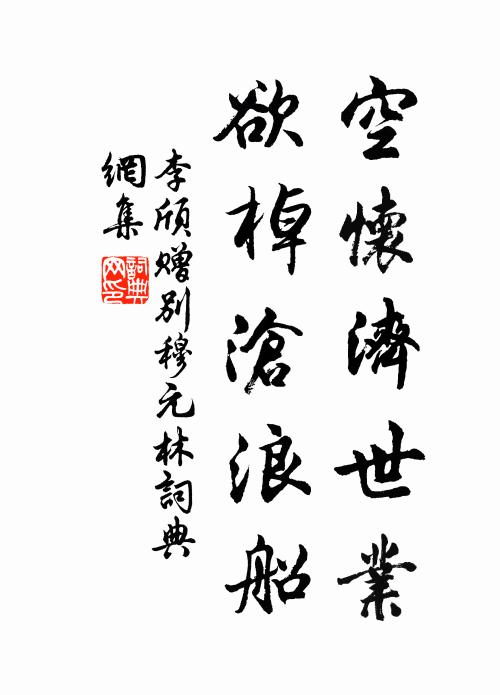 空懷濟世業
欲棹滄浪船
李頎贈別穆元林詞典
網集
詞典
网印